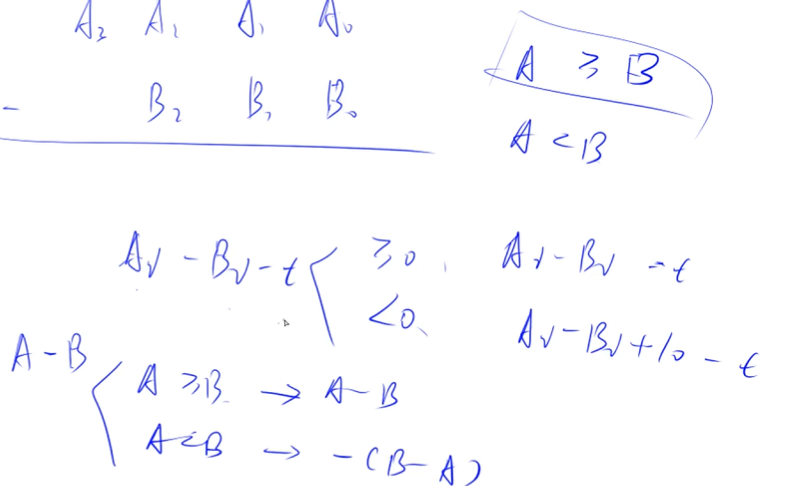 A₃ A₂ A₁ A₀
- B₂ B₁ B₀
A ≥ B
A < B
Aᵢ - Bᵢ - t
≥0, Aᵢ - Bᵢ - t
<0, Aᵢ - Bᵢ + 10 - t
A - B
A ≥ B → A - B
A < B → -(B - A)